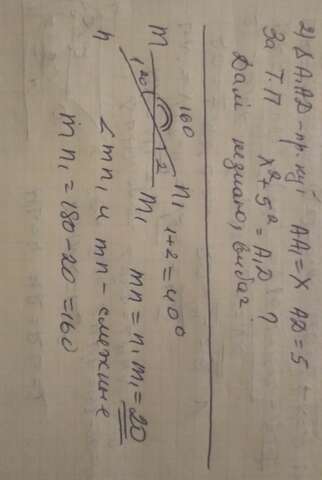 2) Δ A₁AD - пр.куі AA₁ = X AD = 5
За Т.П x² + 5² = A₁D ?
Далі не знаю, вибач
160
m n₁ 1+2=40°
120 2
h m₁ mn = n₁m₁ = 20
∠mn₁ и mn - смежные
mn₁ = 180-20 = 160